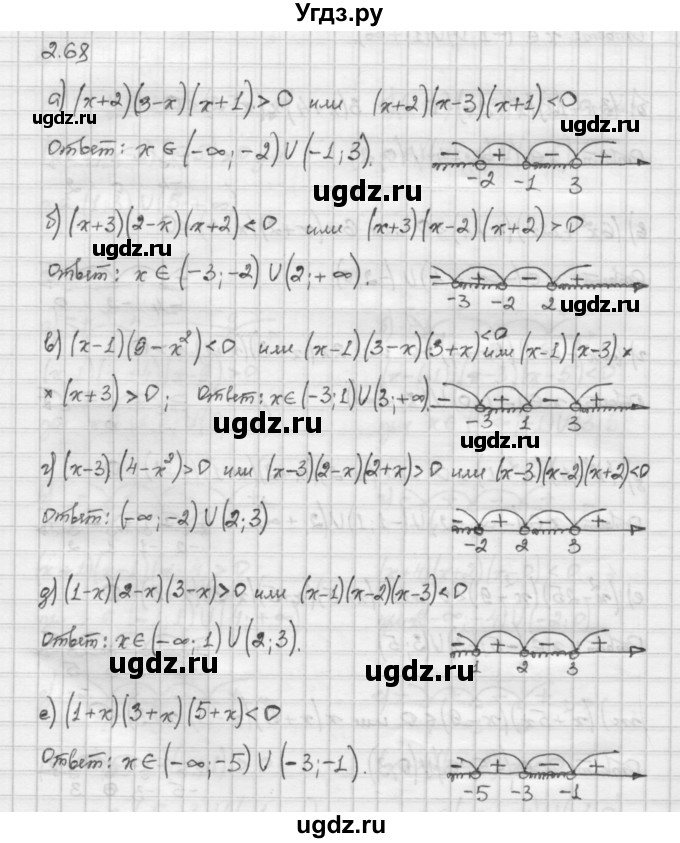 Угдз.ру
2.68
а) (x+2)(3-x)(x+1)>0 или (x+2)(x-3)(x+1)<0
ugdz.ru
ugdz.ru
Ответ: x∈(-∞;-2)∪(-1;3). - + - +
-2 -1 3
ugdz.ru
б) (x+3)(2-x)(x+2)<0 или (x+3)(x-2)(x+2)>0
ugdz.ru
Ответ: x∈(-3;-2)∪(2;+∞). - + - +
-3 -2 2
ugdz.ru
в) (x-1)(9-x²)<0 или (x-1)(3-x)(3+x)<0 или (x-1)(x-3)×
×(x+3)>0; Ответ: x∈(-3;1)∪(3;+∞). - + - +
-3 1 3
ugdz.ru
ugdz.ru
г) (x-3)(4-x²)>0 или (x-3)(2-x)(2+x)>0 или (x-3)(x-2)(x+2)<0
Ответ: (-∞;-2)∪(2;3) - + - +
-2 2 3
ugdz.ru
ugdz.ru
д) (1-x)(2-x)(3-x)>0 или (x-1)(x-2)(x-3)<0
Ответ: x∈(-∞;1)∪(2;3). - + - +
1 2 3
ugdz.ru
ugdz.ru
е) (1+x)(3+x)(5+x)<0
Ответ: x∈(-∞;-5)∪(-3;-1). - + - +
-5 -3 -1
ugdz.ru
ugdz.ru